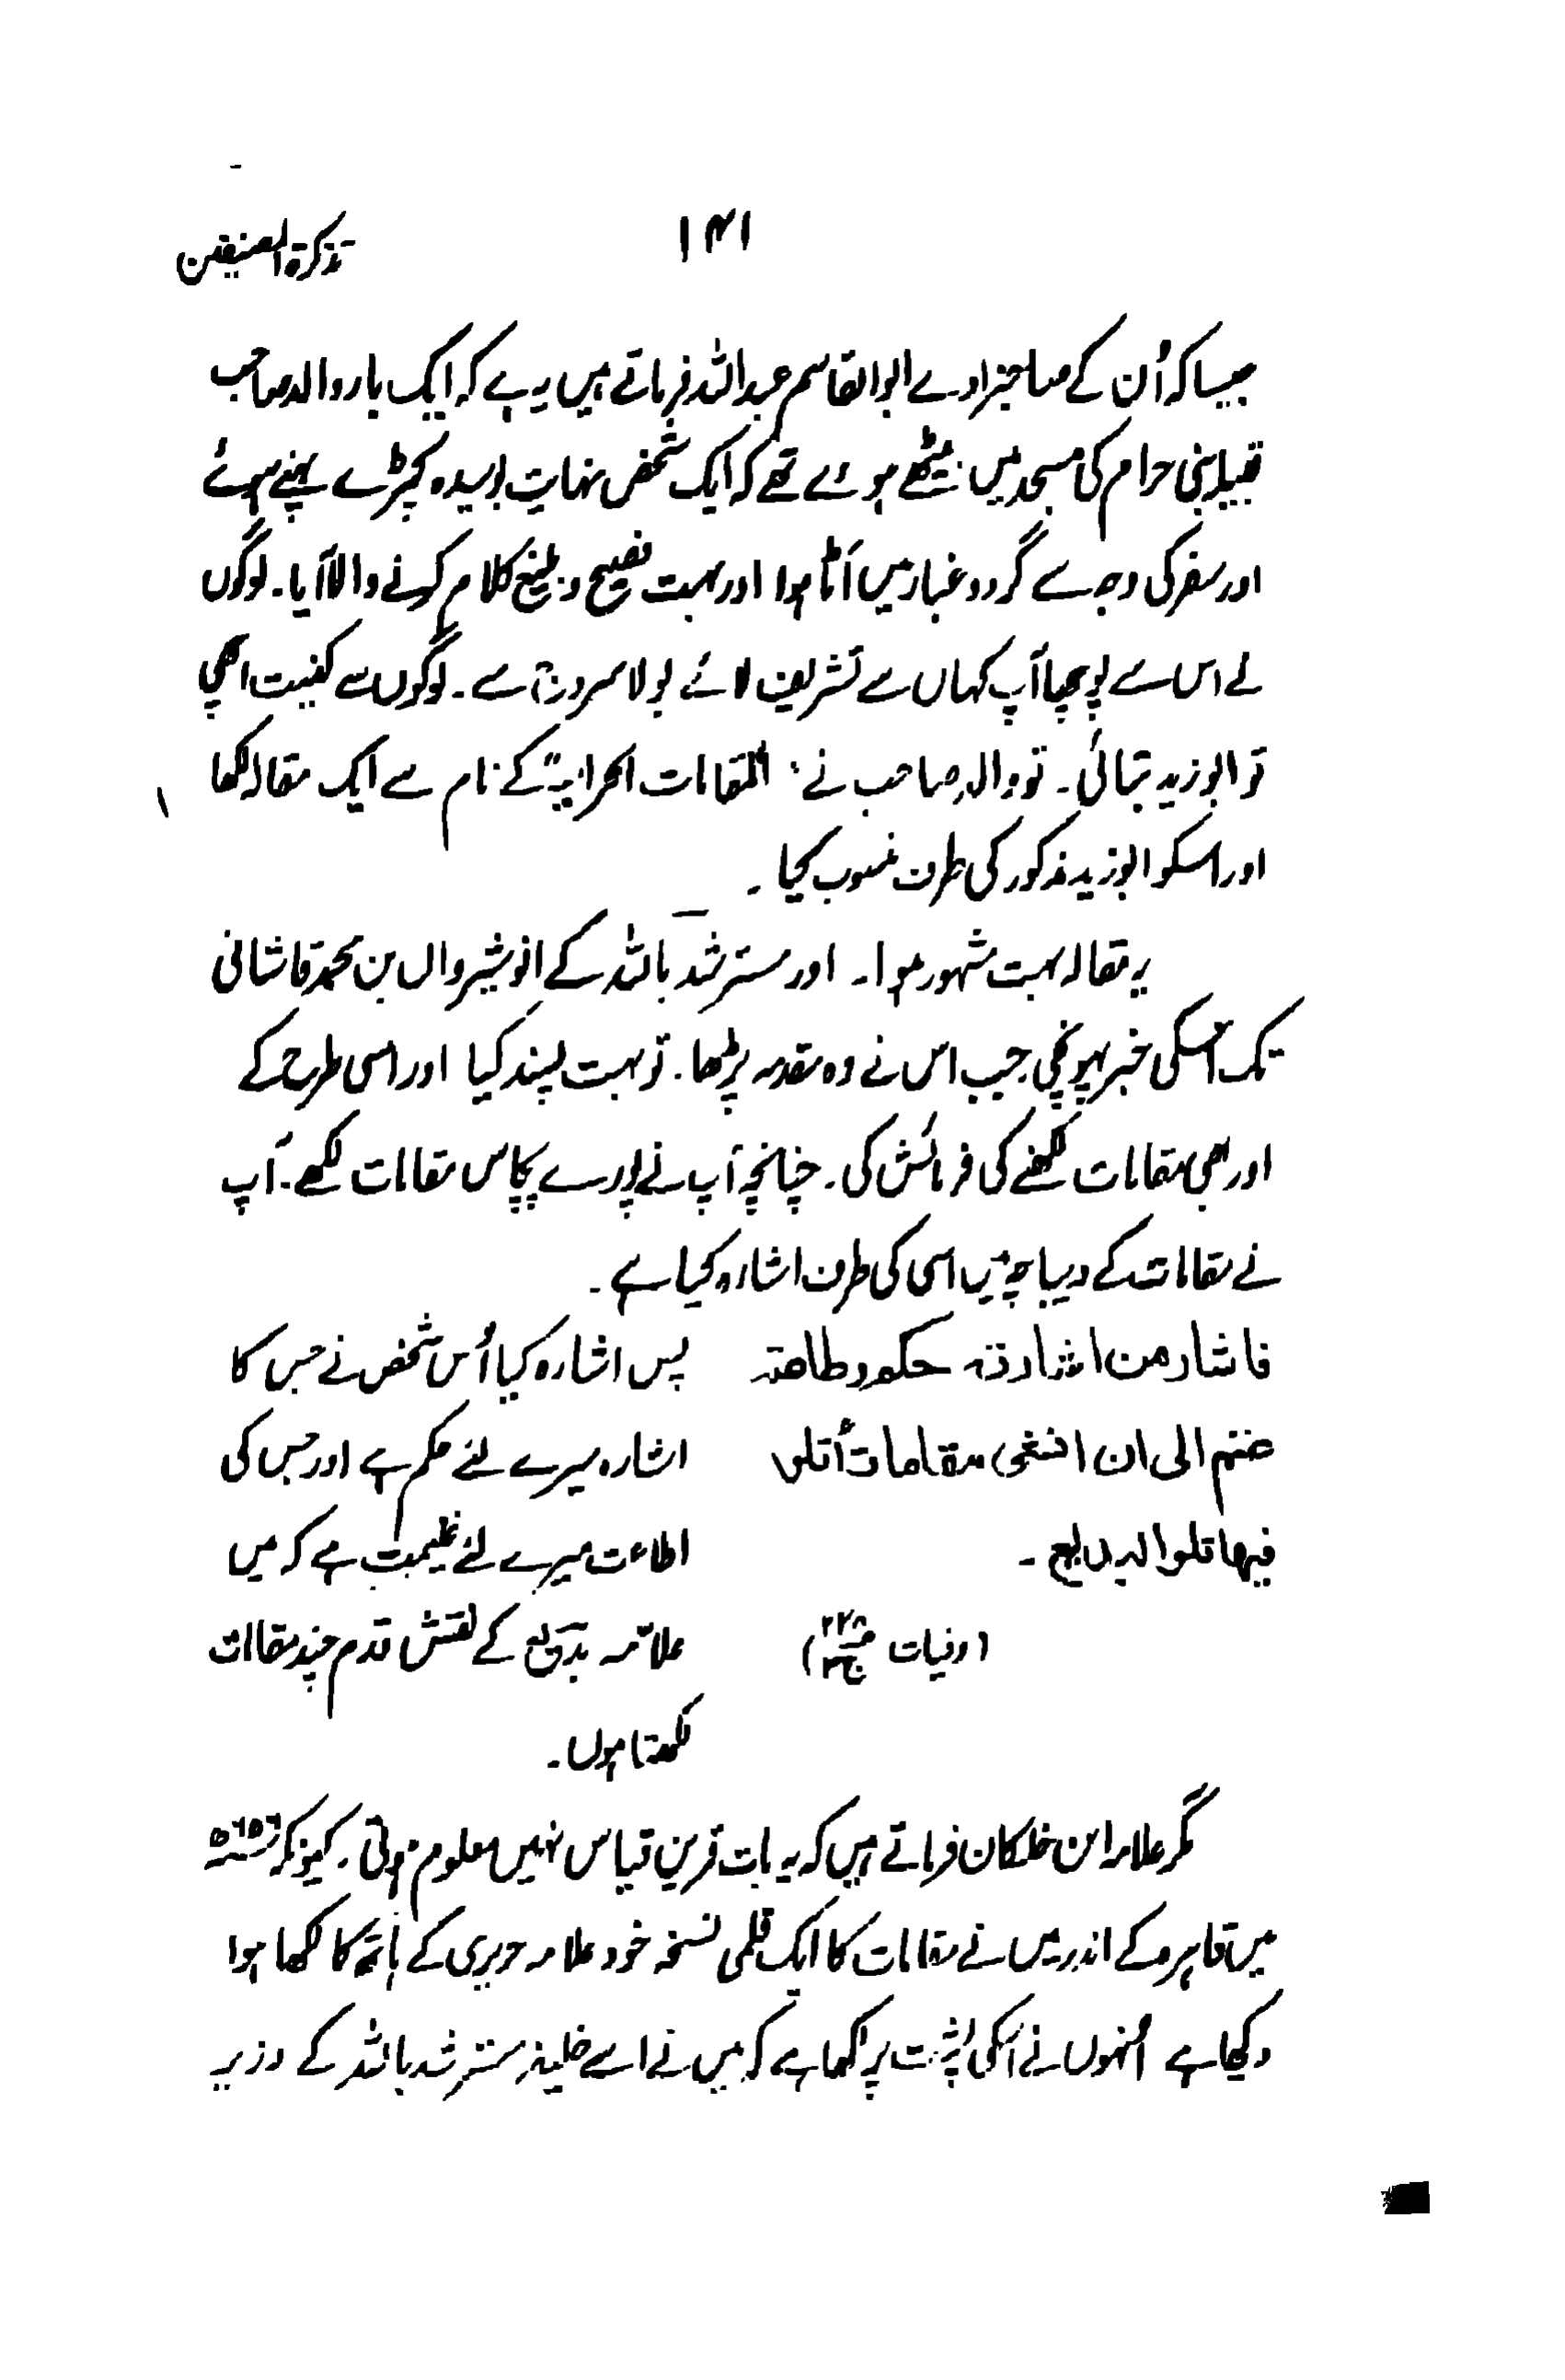 تذکرۃ المصنفین
۱۴۱
جیسا کہ اُن کے صاحبزادے ابوالقاسم عبداللہ فرماتے ہیں یہ ہے کہ ایک بار والد صاحب
قبیلہ بنی حرام کی مسجد میں بیٹھے ہوئے تھے کہ ایک شخص نہایت بوسیدہ کپڑے پہنے ہوئے
اور سفر کی وجہ سے گرد و غبار میں اَٹا ہوا اور بہت فصیح و بلیغ کلام کرنے والا آیا۔ لوگوں
نے اس سے پوچھا آپ کہاں سے تشریف لائے بولا سروج سے۔ لوگوں نے کنیت پوچھی
تو ابوزید بتائی۔ تو والد صاحب نے "المقامات الحرامیہ" کے نام سے ایک مقالہ لکھا
اور اسکو ابوزید مذکور کی طرف منسوب کیا۔
یہ مقالہ بہت مشہور ہوا۔ اور مسترشد باللہ کے انوشیرواں بن محمد قاشانی
تک اسکی خبر پہونچی جب اس نے وہ مقدمہ پڑھا۔ تو بہت پسند کیا اور اسی طرح کے
اور بھی مقامات لکھنے کی فرمائش کی۔ چنانچہ آپ نے پورے پچاس مقامات لکھے۔ آپ
نے مقامات کے دیباچہ میں اسی کی طرف اشارہ کیا ہے۔
فاشار من اشارتہ حکم و طاعتہ
غنم الی ان انشئی مقامات أتلو
فیها تلو البدیع۔
(وفیات ۲۲۸ ج۳)
پس اشارہ کیا اُس شخص نے جس کا
اشارہ میرے لئے حکم ہے اور جس کی
اطاعت میرے لئے غنیمت ہے کہ میں
علامہ بدیع کے نقش قدم چند مقامات
لکھتا ہوں۔
مگر علامہ ابن خلکان فرماتے ہیں کہ یہ بات قرین قیاس نہیں معلوم ہوتی۔ کیونکہ ۶۵۶ھ
میں قاہرہ کے اندر میں نے مقامات کا ایک قلمی نسخہ خود علامہ حریری کے ہاتھ کا لکھا ہوا
دیکھا ہے اُنہوں نے اسکی پُشت پر لکھا ہے کہ میں نے اسے خلیفہ مسترشد باللہ کے وزیر